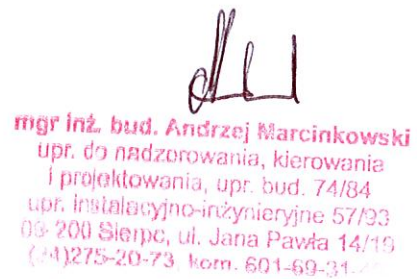 mgr inż. bud. Andrzej Marcinkowski
upr. do nadzorowania, kierowania
i projektowania, upr. bud. 74/84
upr. instalacyjno-inżynieryjne 57/93
09-200 Sierpc, ul. Jana Pawła 14/19
(24)275-20-73 kom. 601-69-31-